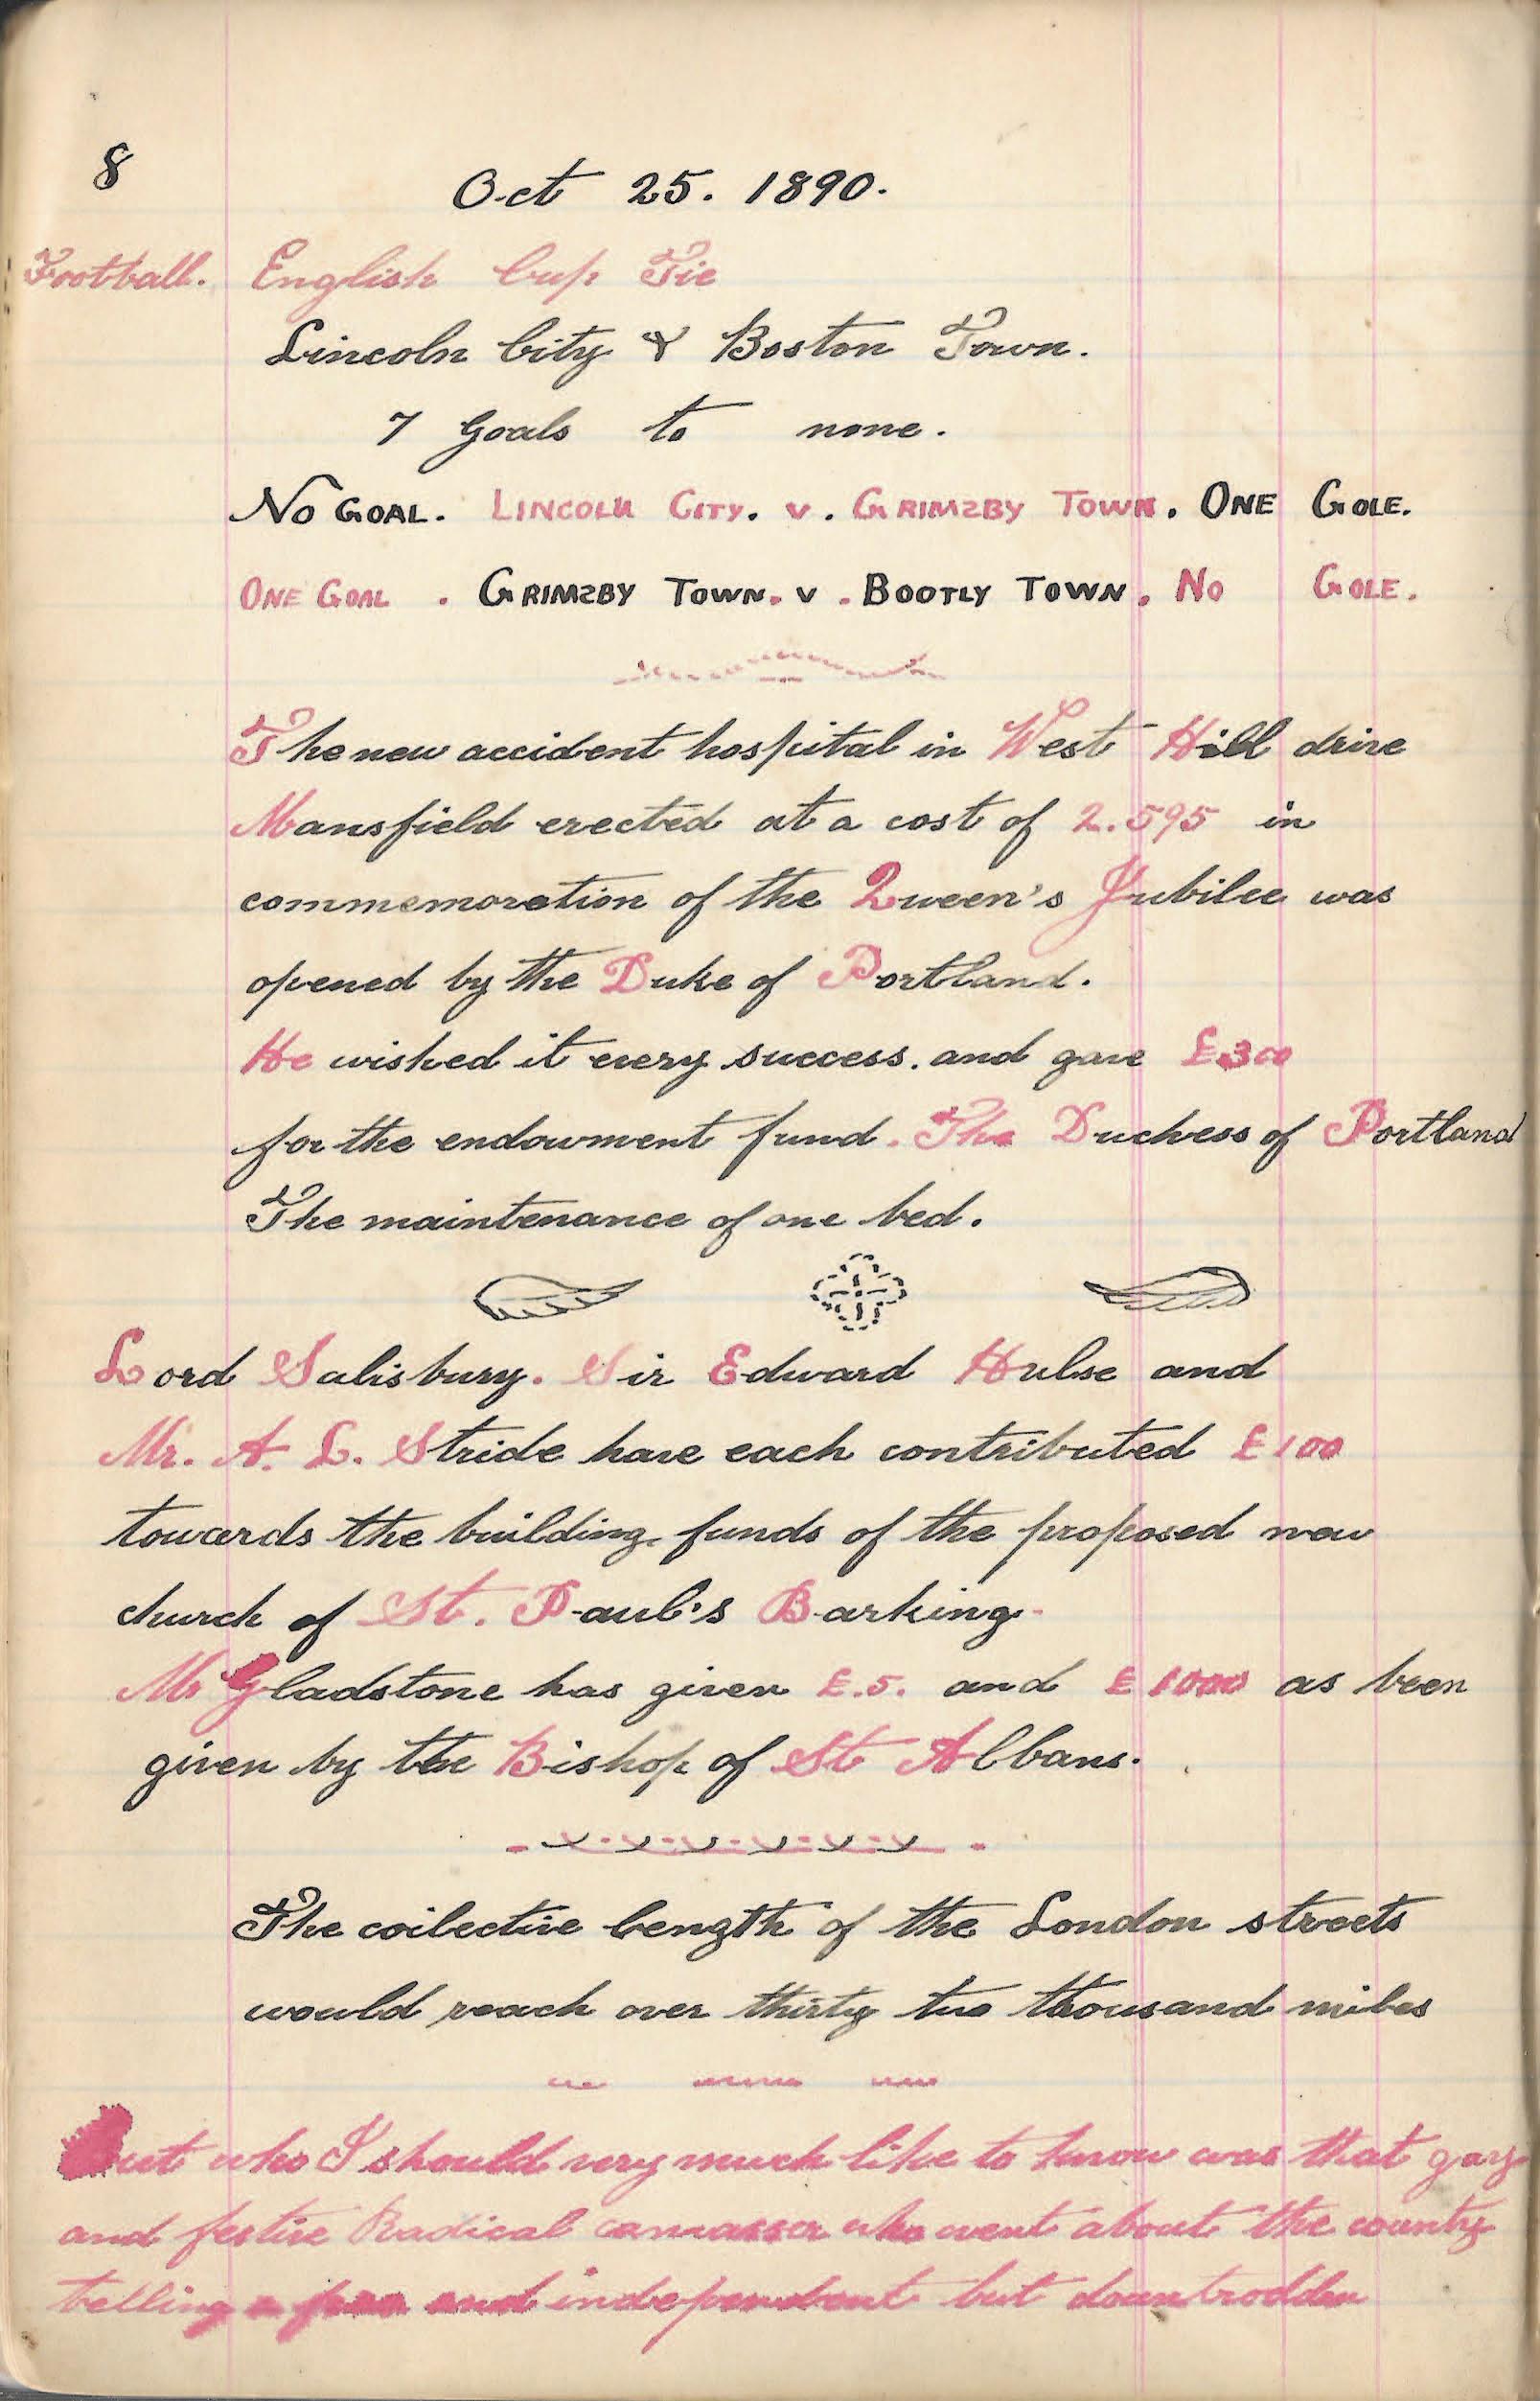 8
Oct 25. 1890.
Football. English Cup Tie
Lincoln City & Boston Town.
7 Goals to none.
No GOAL. LINCOLN CITY. v. GRIMSBY TOWN. ONE GOLE.
ONE GOAL. GRIMSBY TOWN. v. BOOTLY TOWN. No GOLE.
The new accident hospital in West Hill drive
Mansfield erected at a cost of 2.595 in
commemoration of the Queen's Jubilee was
opened by the Duke of Portland.
He wished it every success. and gave £300
for the endowment fund. The Duchess of Portland
The maintenance of one bed.
Lord Salisbury. Sir Edward Hulse and
Mr. A. L. Stride have each contributed £100
towards the building funds of the proposed new
church of St. Paul's Barking.
Mr Gladstone has given £.5. and £1000 as been
given by the Bishop of St Albans.
The coilective length of the London streets
would reach over thirty two thousand miles
But who I should very much like to know was that gay
and festive Radical canvasser who went about the country
telling a free and independent but downtrodden